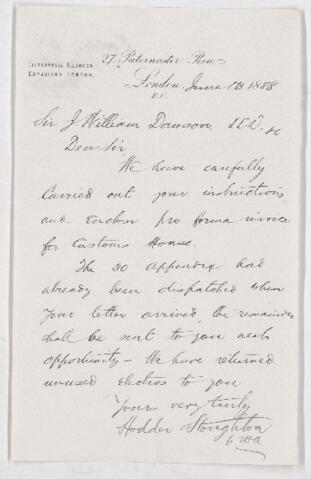 27, Paternoster Row
TELEGRAPHIC ADDRESS
EXPOSITOR LONDON.
London, June 18 1888
E.C.
Sir J. William Dawson, LL.D. &c
Dear Sir
We have carefully
carried out your instructions,
and enclose pro forma invoice
for Customs House.
The 30 appendix had
already been dispatched when
your letter arrived, the remainder
shall be sent to you next
opportunity - We have returned
unused electros to you
Yours very truly
Hodder Stoughton